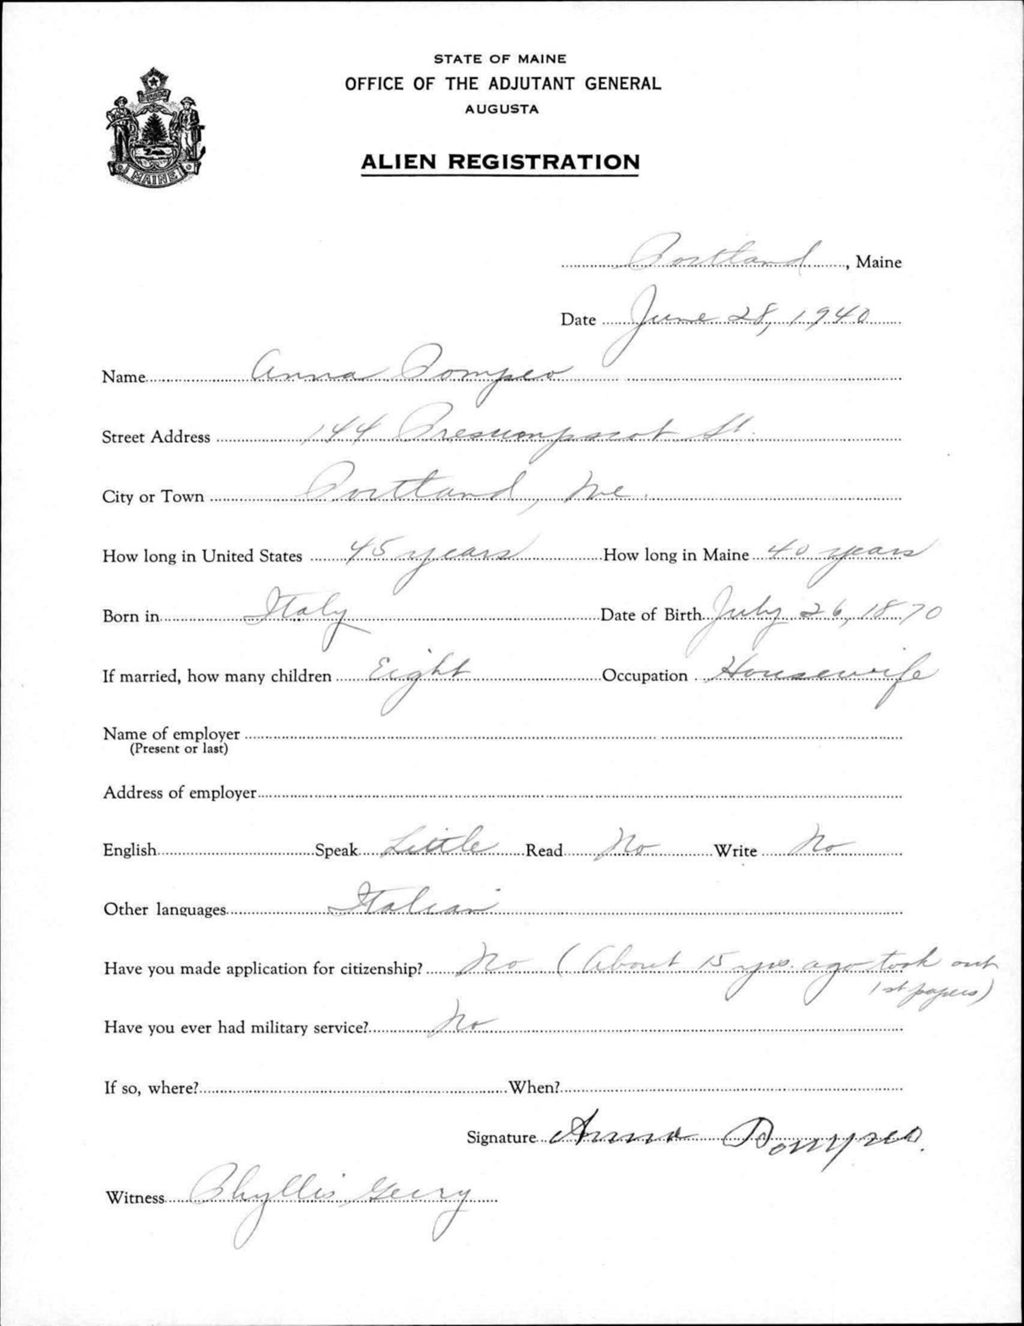 STATE OF MAINE
OFFICE OF THE ADJUTANT GENERAL
AUGUSTA
ALIEN REGISTRATION
MAINE
Portland, Maine
Date June 28, 1940
Name Anna Pompeo
Street Address 144 Presumpscot St.
City or Town Portland, Me.
How long in United States 45 years How long in Maine 40 years
Born in Italy Date of Birth July 26, 1870
If married, how many children Eight Occupation Housewife
Name of employer
(Present or last)
Address of employer
English Speak Little Read No Write No
Other languages Italian
Have you made application for citizenship? No (About 15 yrs. ago took out
1st papers)
Have you ever had military service? No
If so, where? When?
Signature Anna Pompeo.
Witness Phyllis Geiry